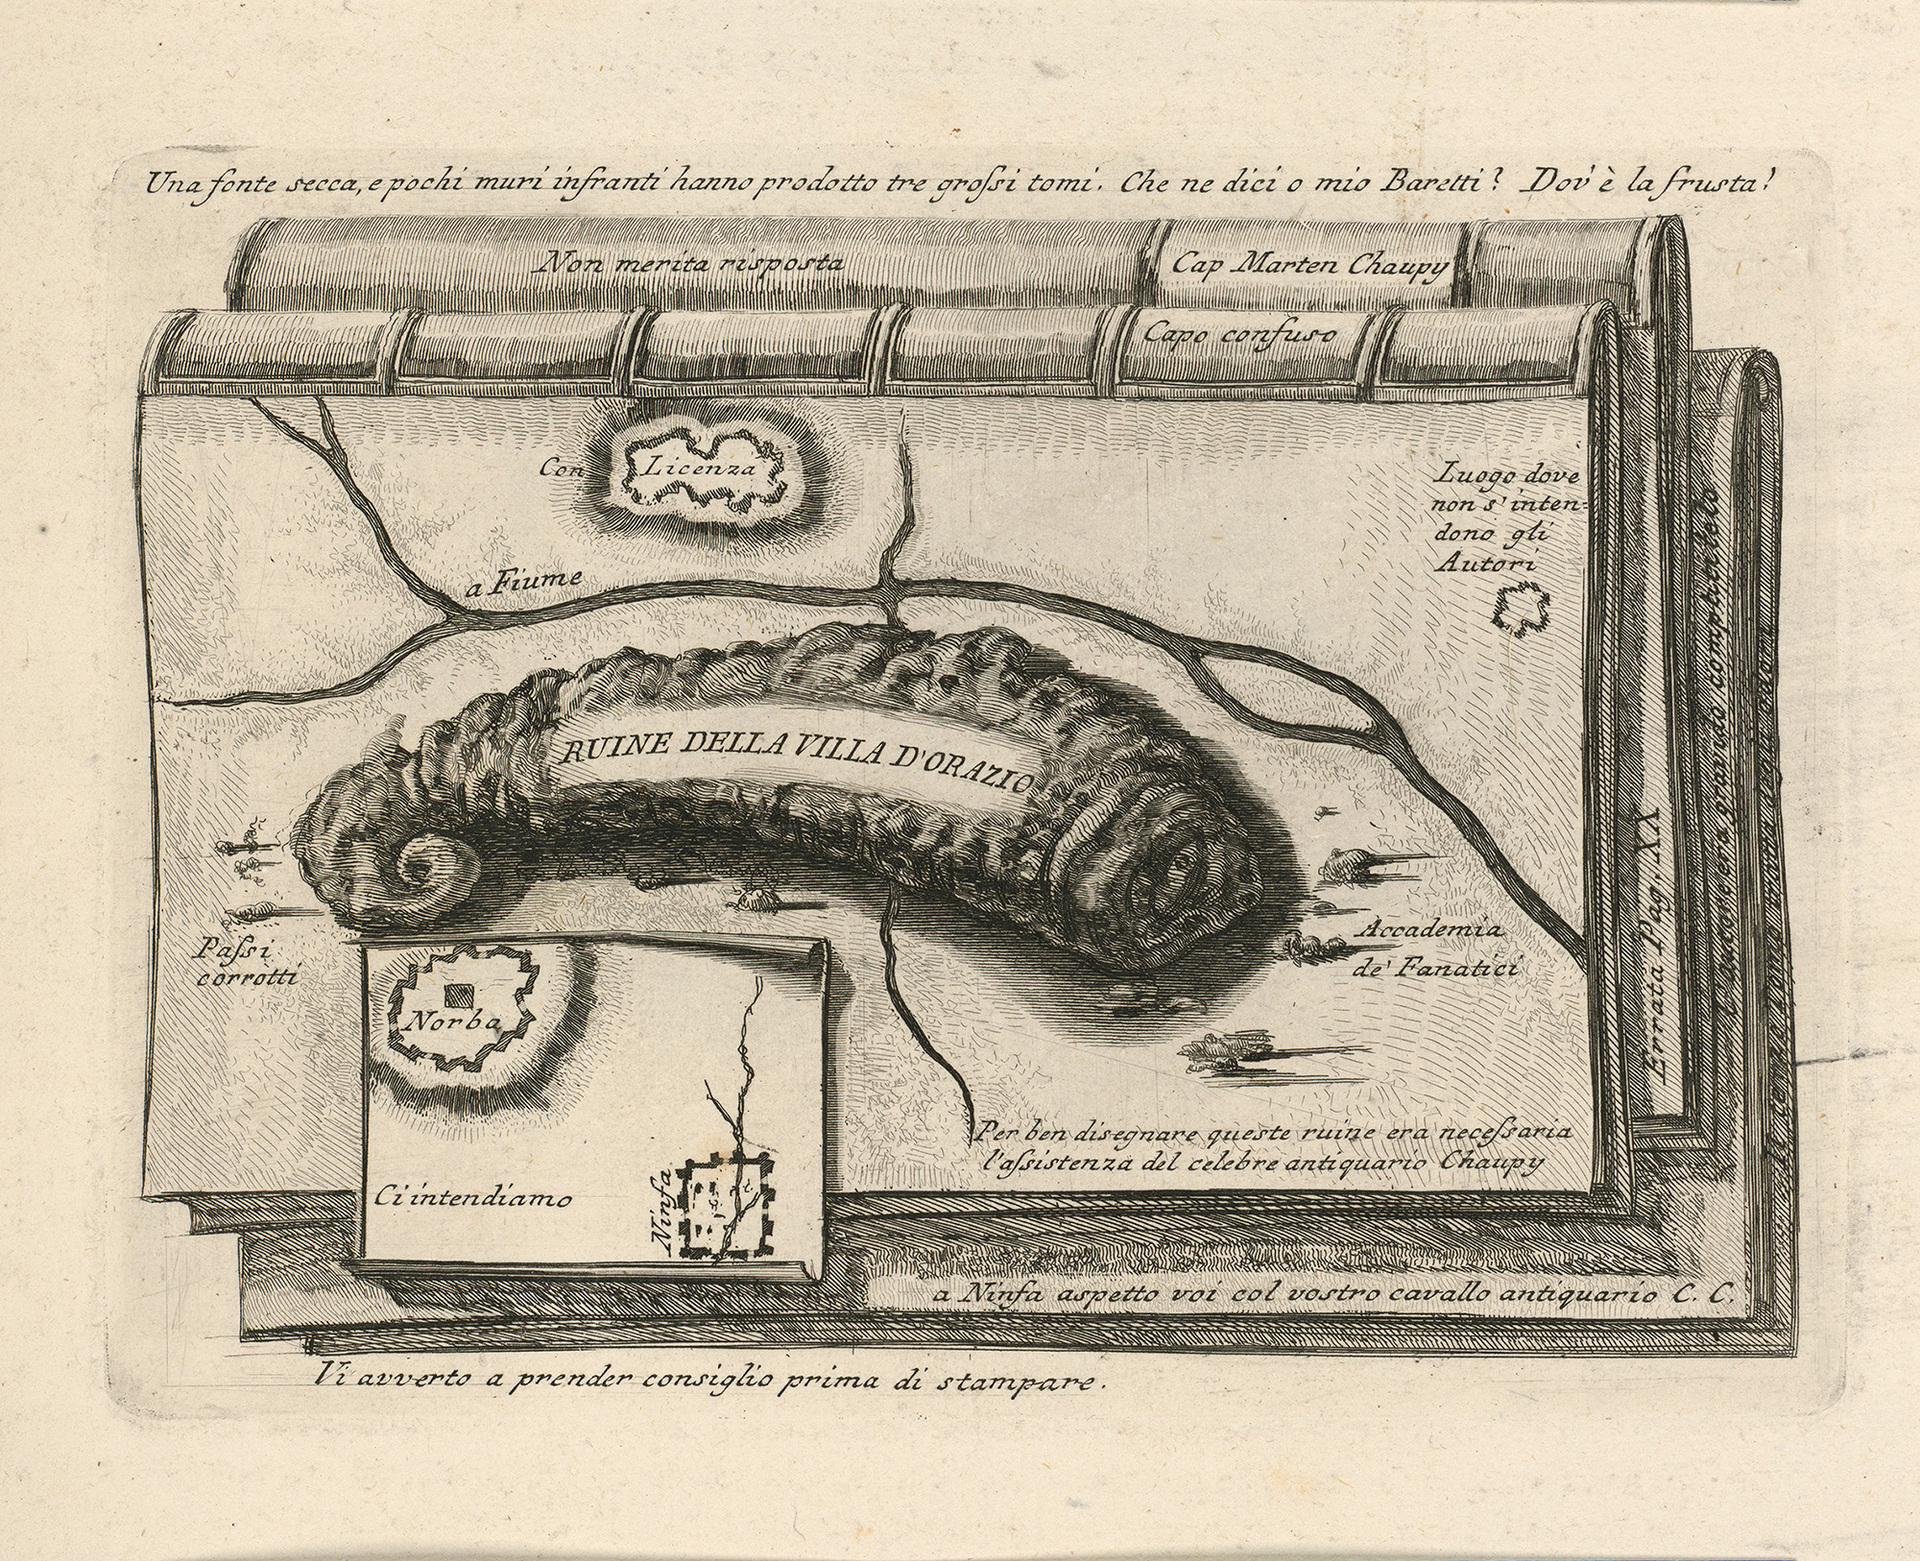 Una fonte secca, e pochi muri infranti hanno prodotto tre groſsi tomi. Che ne dici o mio Baretti? Dov'è la frusta?
Non merita risposta
Cap Marten Chaupy
Capo confuso
Con Licenza
a Fiume
Luogo dove
non s'inten=
dono gli
Autori
RUINE DELLA VILLA D'ORAZIO
Paſsi
corrotti
Accademia
de' Fanatici
Norba
Ci intendiamo
Ninfa
Per ben disegnare queste ruine era neceſsaria
l'aſsistenza del celebre antiquario Chaupy
Errata Pag. XX
a Ninfa aspetto voi col vostro cavallo antiquario C. C.
Vi avverto a prender consiglio prima di stampare.